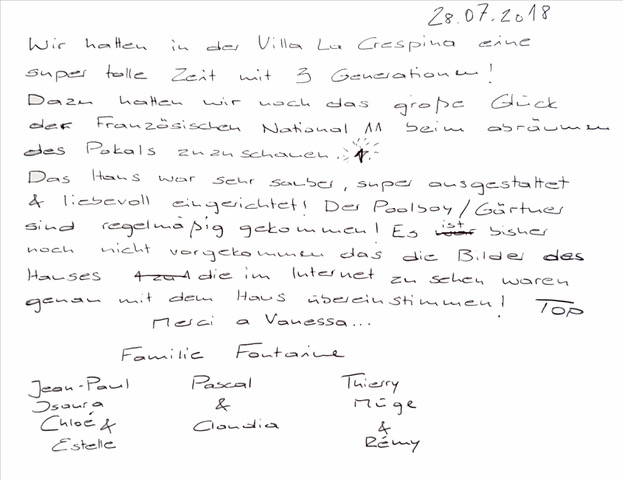 28.07.2018
Wir hatten in der Villa La Crespina eine
super tolle Zeit mit 3 Generationen!
Dazu hatten wir noch das große Glück
der Französischen National 11 beim abräumen
des Pokals zuzuschauen.
Das Haus war sehr sauber, super ausgestattet
& liebevoll eingerichtet! Der Poolboy/Gärtner
sind regelmäßig gekommen! Es ist bisher
noch nicht vorgekommen das die Bilder des
Hauses die im Internet zu sehen waren
genau mit dem Haus übereinstimmen! TOP
Merci a Vanessa...
Familie Fontaine
Jean-Paul Pascal Thierry
Isaura & Müge
Chloé & Claudia &
Estelle Rémy